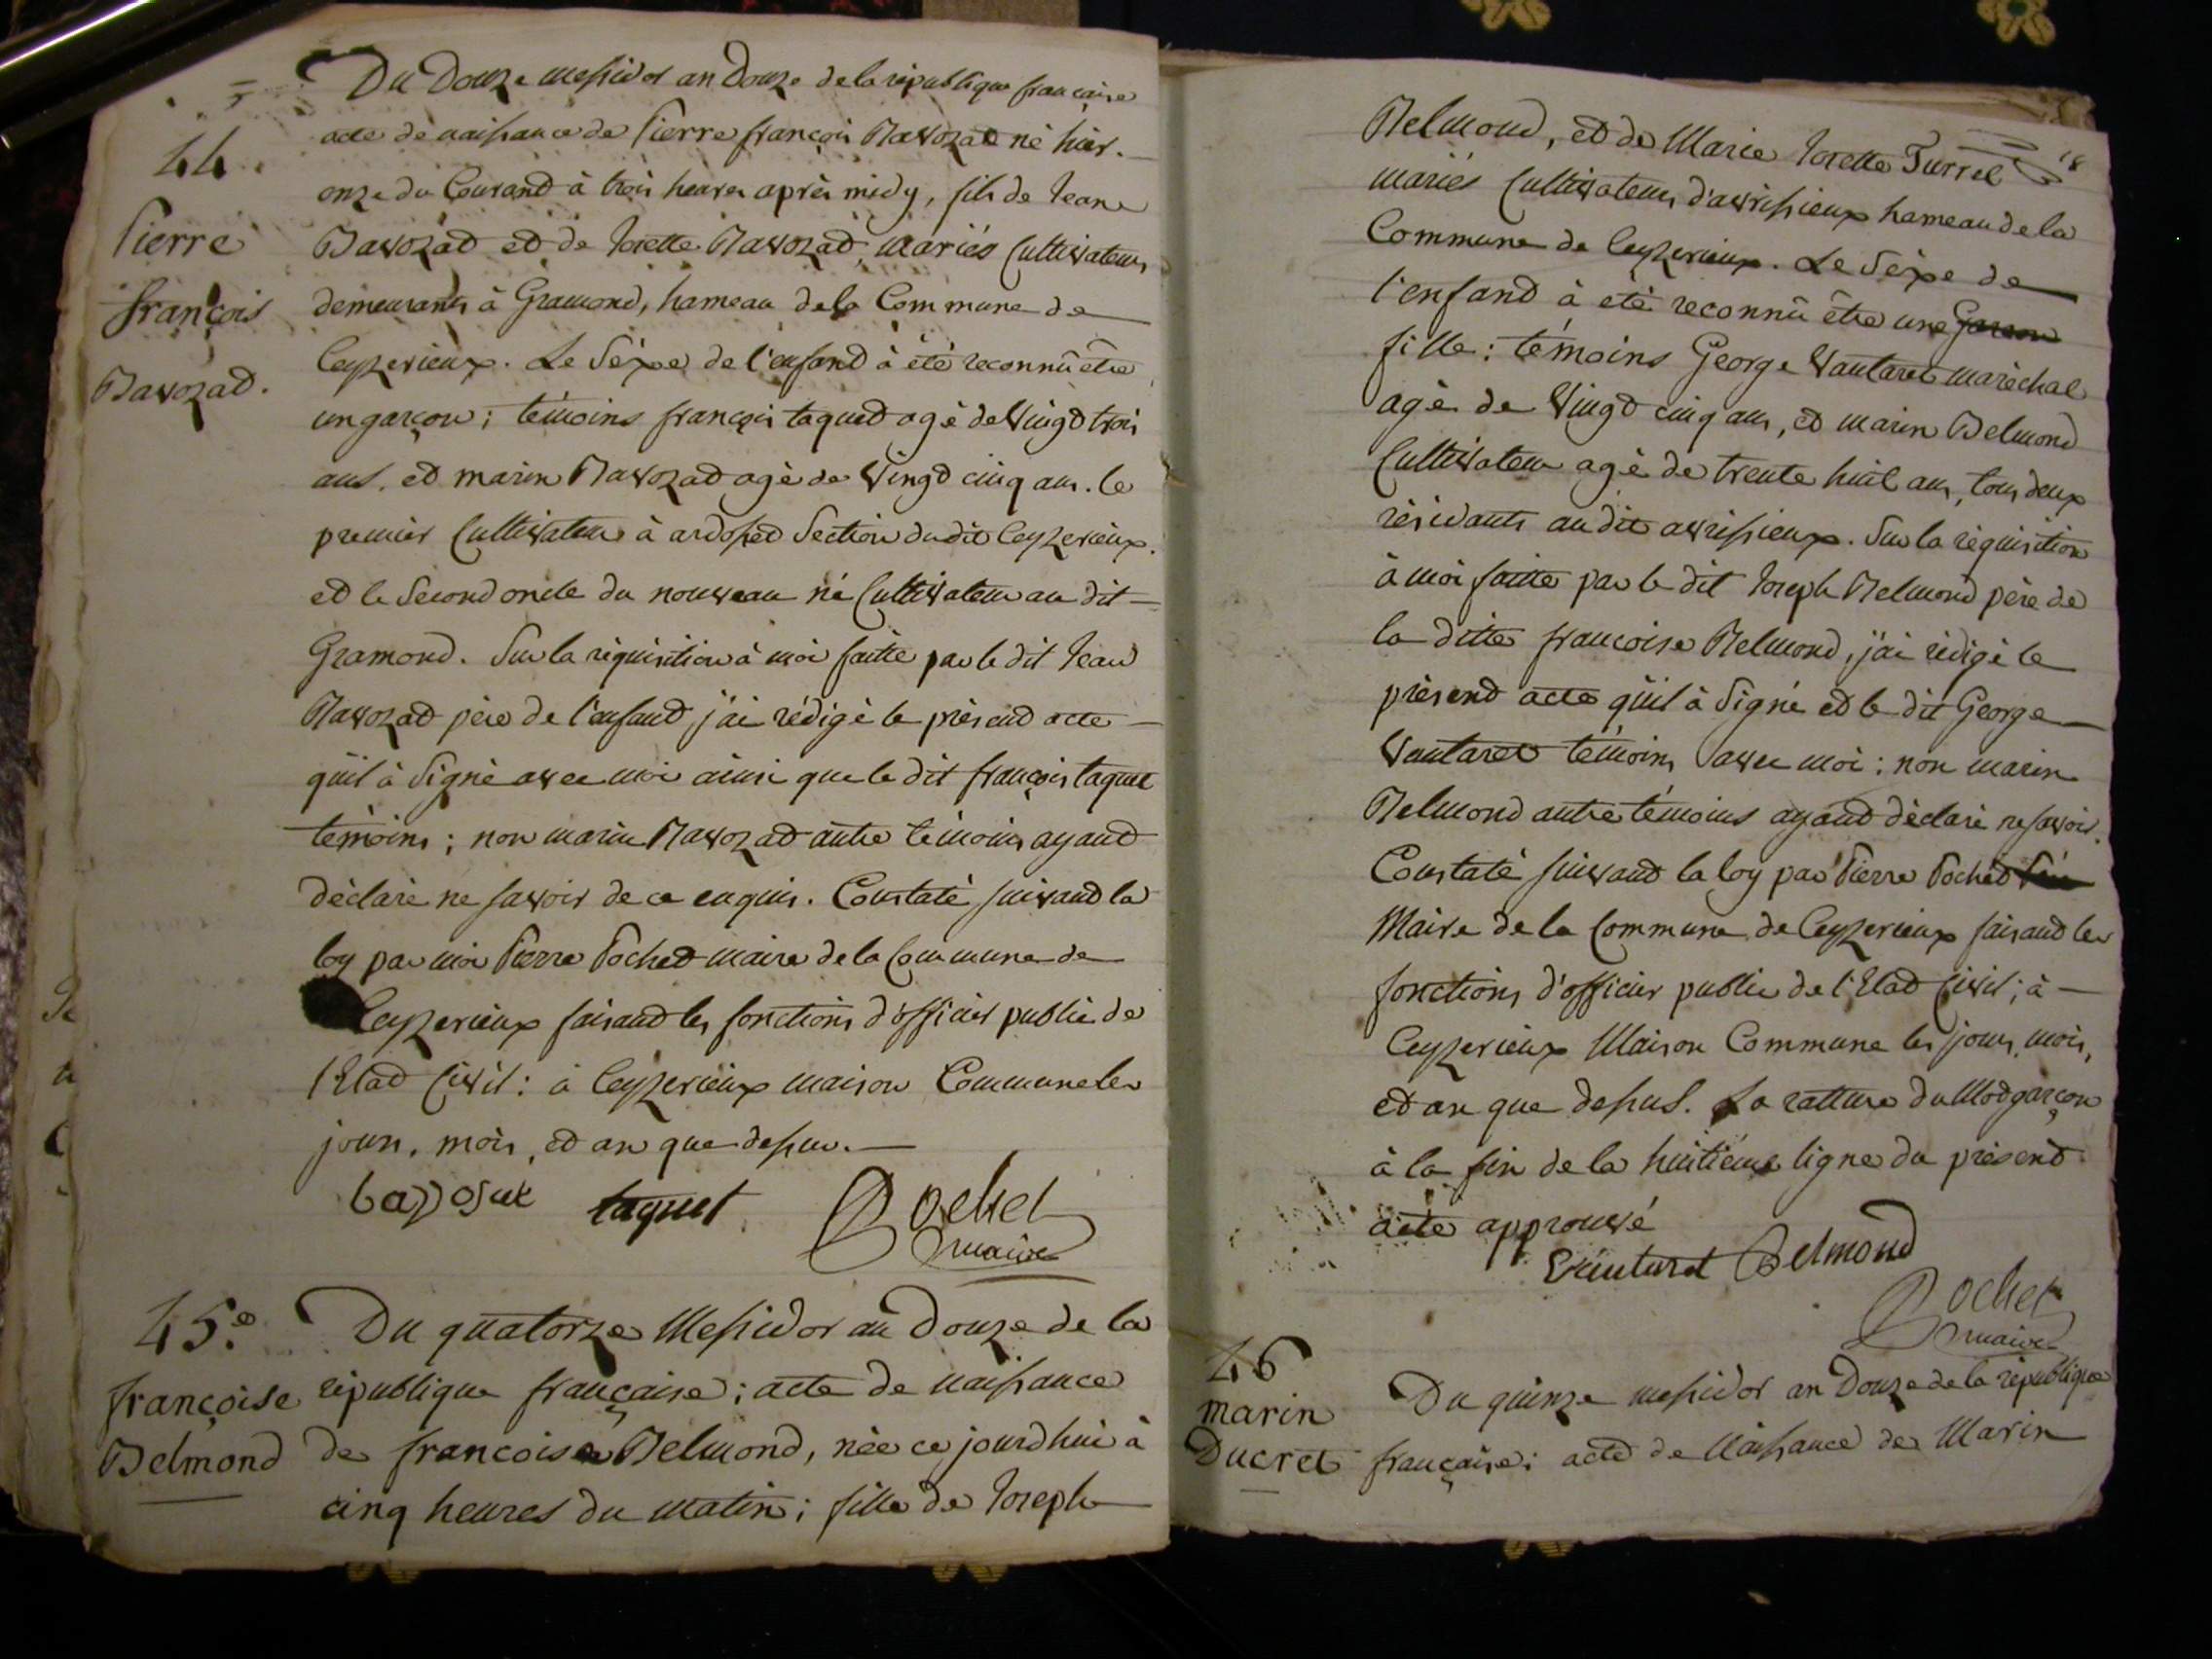 44.
Pierre
françois
Bavozad.
Du Douze messidor an Douze de la république française
acte de naissance de Pierre françois Bavozad né hier.
onze du Courand à trois heures après midy, fils de Jean
Bavozad et de Josette Bavozad, mariés Cultivateurs
demeurants à Gramond, hameau de la Commune de
Ceyzerieux. Le Séxe de l'enfand à été reconnû être
un garçon; témoins françois taqued agé de Vingd trois
ans, ed marin Bavozad agé de Vingd cinq ans. le
premier Cultivateur à ardosed Section du dit Ceyzerieux.
ed le Second oncle du nouveau né Cultivateur au dit
Gramond. Sur la réquisition à moi faitte par le dit Jean
Bavozad père de l'enfand j'ai rédigé le présend acte
qu'il à Signé avec moi ainsi que le dit françois taquet
témoins; non marin Bavozad autre témoins ayand
déclaré ne savoir de ce enquis. Constaté suivand la
loy par moi Pierre Pochet maire de la Commune de
Ceyzerieux faisand les fonctions d'officier public de
l'Etad Civil: à Ceyzerieux maison Commune les
jours, mois, ed an que dessus.
bavosat taquet Pochet
maire
45.e
françoise
Belmond
Du quatorze Messidor an Douze de la
république française; acte de naissance
de francoise Belmond, née ce jourd'hui à
cinq heures du matin; fille de Joseph
18
Belmond, ed de Marie Josette Turrel
mariés Cultivateurs d'avrissieux hameau de la
Commune de Ceyzerieux. Le Séxe de
l'enfand à été reconnû être une Garcon
fille: témoins George Vautaret maréchal
agé de Vingd cinq ans, ed marin Belmond
Cultivateur agé de trente huit ans, tous deux
résidants au dit avrissieux. Sur la réquisition
à moi faitte par le dit Joseph Belmond père de
la ditte francoise Belmond, j'ai rédigé le
présend acte qu'il à Signé ed le dit George
Vautaret témoins avec moi: non marin
Belmond autre témoins ayand déclaré ne savoir.
Constaté suivand la loy par Pierre Pochet
Maire de la Commune de Ceyzerieux faisand les
fonctions d'officier public de l'Etad Civil; à
Ceyzerieux Maison Commune les jours, mois,
ed an que dessus. La ratture du Mod garçon
à la fin de la huitième ligne du présend
acte approuvé
Vauturet Belmond
Pochet
maire
46
marin
Ducret
Du quinze messidor an Douze de la république
française; acte de Naissance de Marin